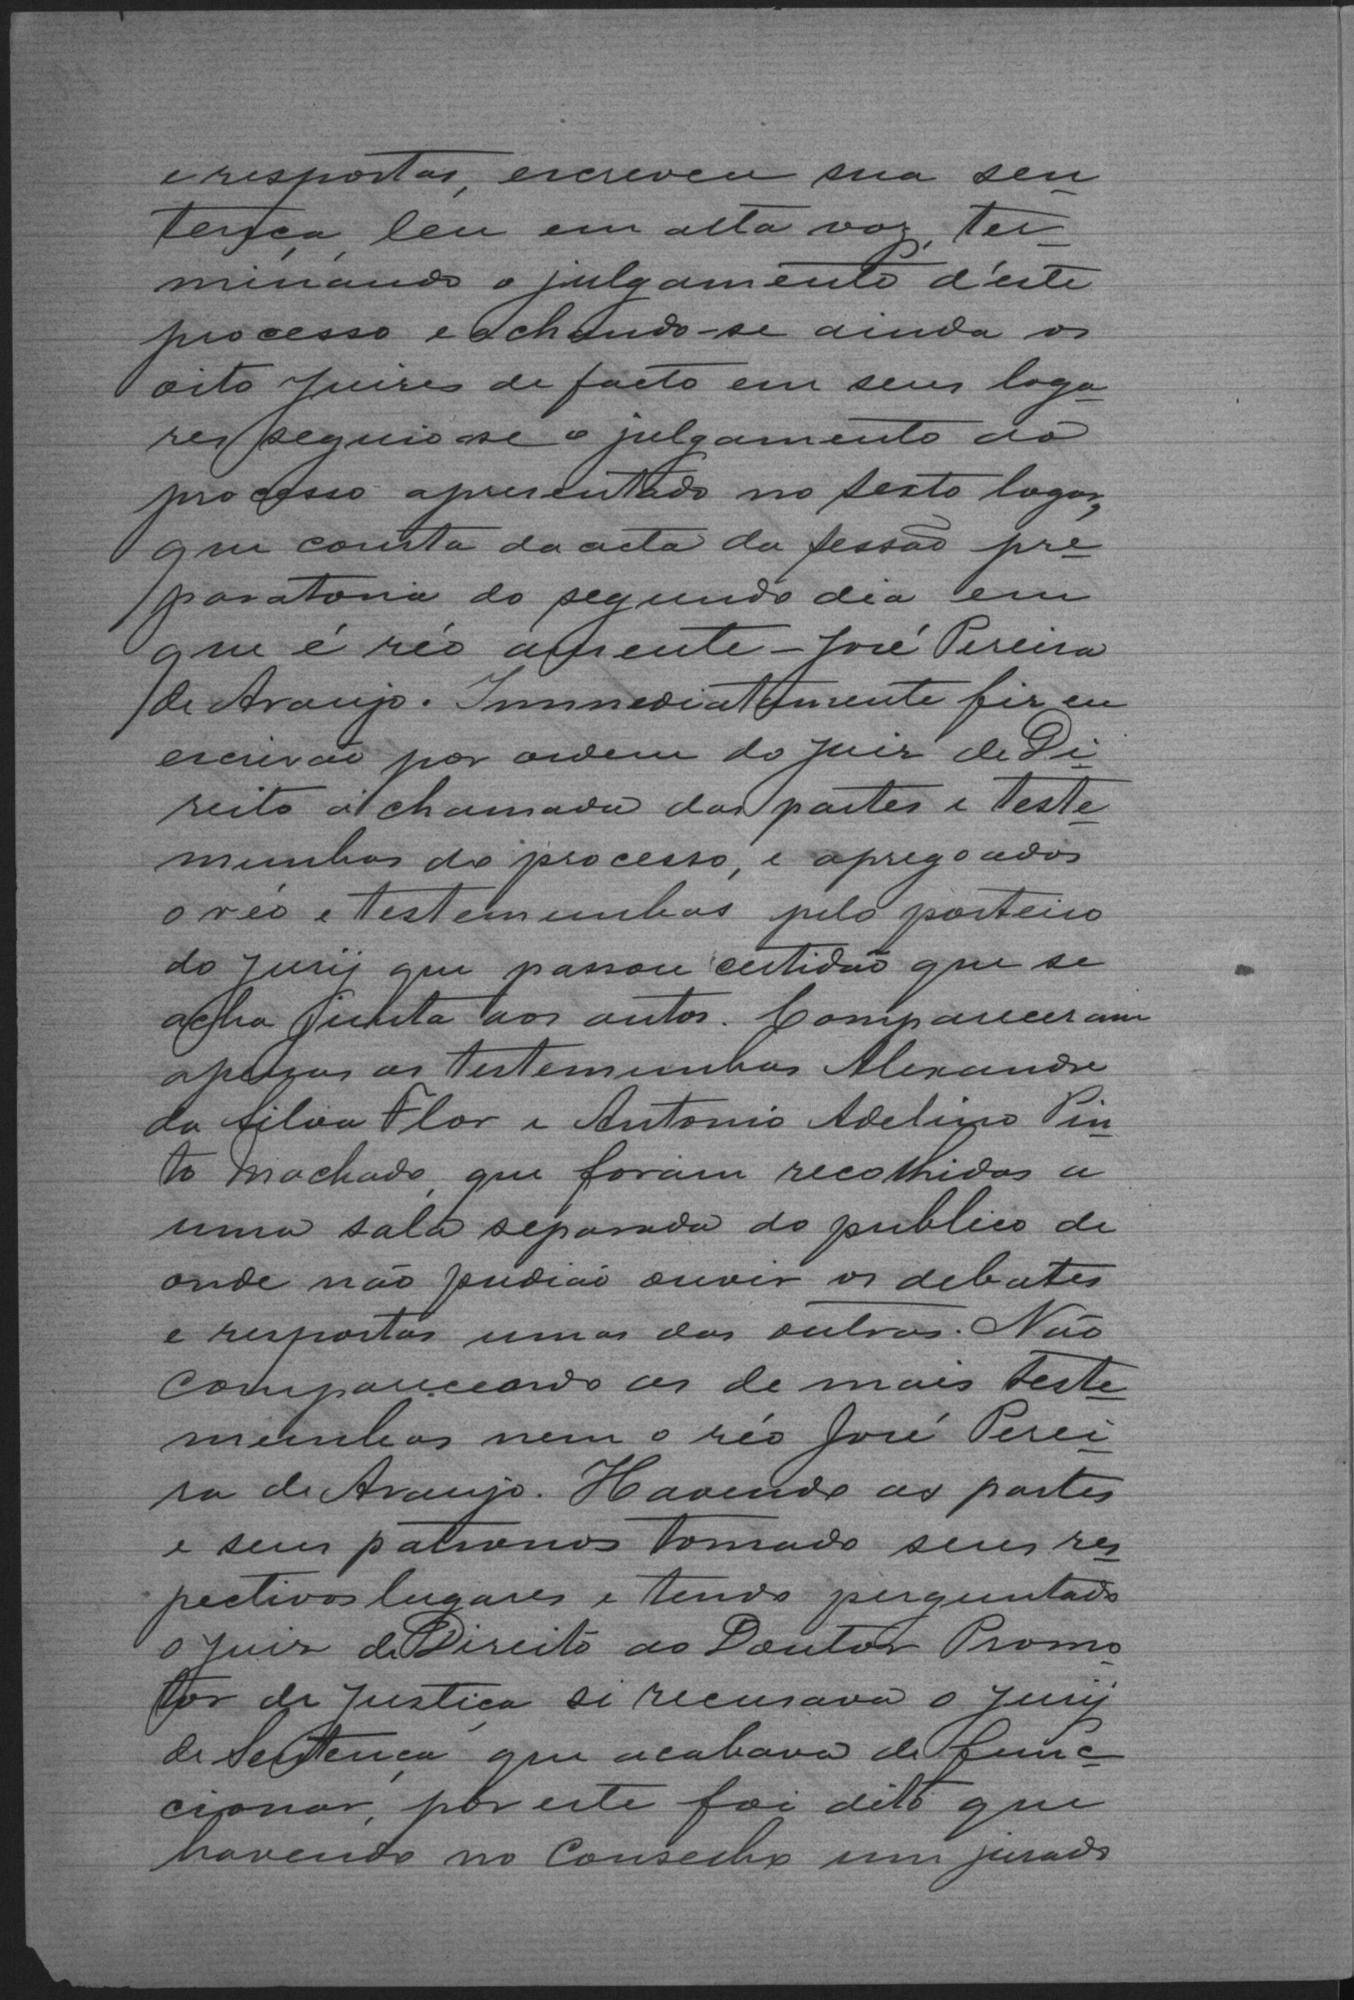 e respostas, escreveu sua sen
tença, leu em alta voz, ter-
minando o julgamento d'este
processo e achando-se ainda os
oito Juizes de facto em seus loga
res seguio-se o julgamento do
processo apresentado no sexto logar,
que consta da acta da sessão pre
paratoria do segundo dia em
que é réo ausente - José Pereira
de Araujo. Immediatamente fiz eu
escrivão por ordem do Juiz de Di
reito a chamada das partes e teste
munhas do processo, e apregoados
o réo e testemunhas pelo porteiro
do Jury que passou certidão que se
acha junta aos autos. Compareceram
apenas as testemunhas Alexandre
da Silva Flor e Antonio Adelino Pin
to Machado, que foram recolhidas a
uma sala separada do publico de
onde não pudião ouvir os debates
e respostas umas das outras. Não
comparecendo as de mais teste
munhas nem o réo José Perei
ra de Araujo. Havendo as partes
e seus patronos tomado seus res
pectivos lugares e tendo perguntado
o Juiz de Direito ao Doutor Promo
tor de Justiça si recusava o Jury
de Sentença que acabava de func
cionar, por este foi dito que
havendo no Conselho um jurado